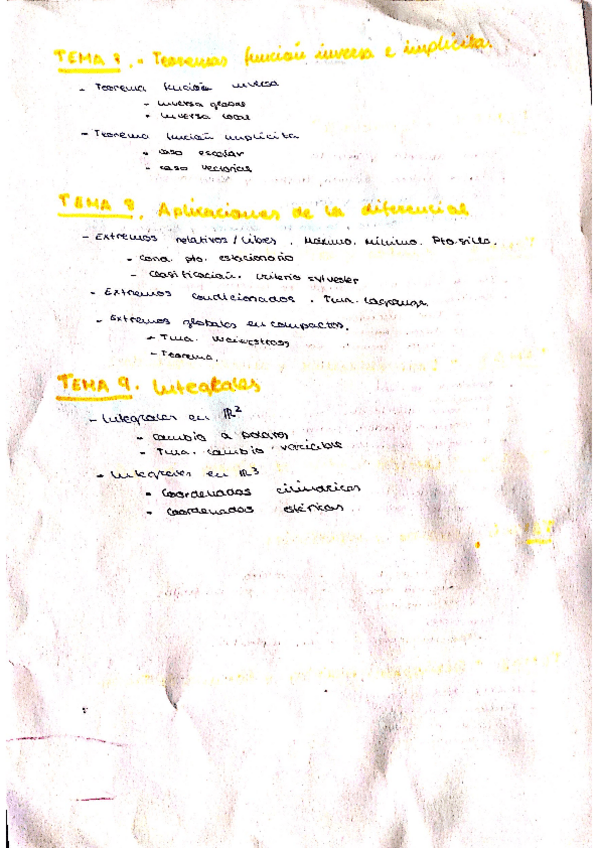 TEMA 7. - Teoremas función inversa e implícita.
- Teorema función inversa
- inversa global
- inversa local
- Teorema función implícita
- caso escalar
- caso vectorial
TEMA 8. Aplicaciones de la diferencial
- Extremos relativos/libres. Máximo. Mínimo. Pto. silla.
- Cond. pto. estacionario
- Clasificación. criterio sylvester
- Extremos condicionados. Tma. Lagrange.
- Extremos globales en compactos.
- Tma. Weierstrass
- Teorema.
TEMA 9. Integrales
- Integrales en ℝ²
- cambio a polares
- Tma. cambio variable
- Integrales en ℝ³
- Coordenadas cilíndricas
- Coordenadas esféricas